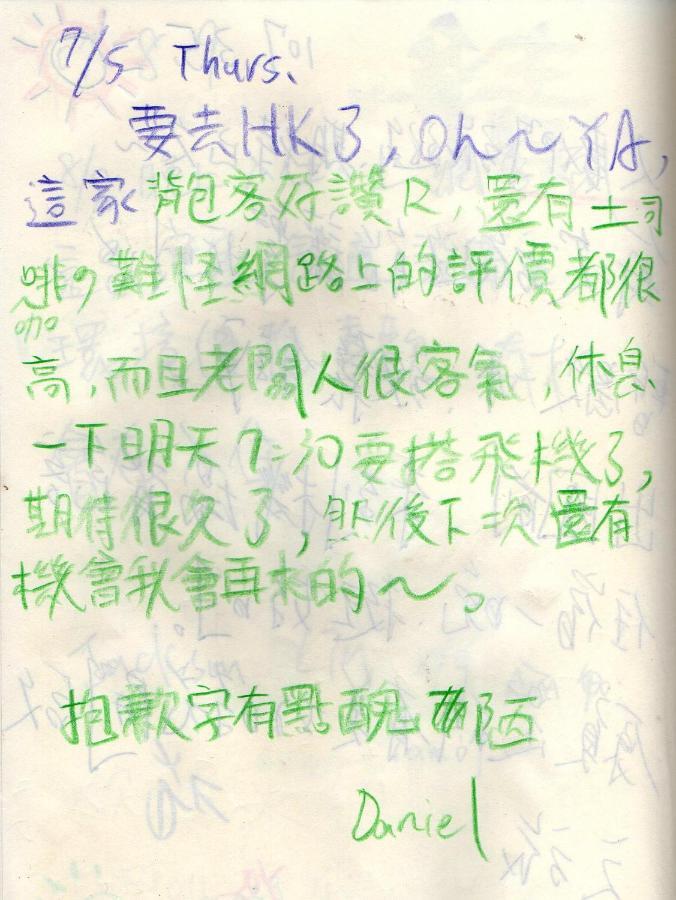 7/5 Thurs.
要去HK了,Oh~YA,
這家背包客好讚R,還有土司
啡,難怪網路上的評價都很
咖
高,而且老闆人很客氣,休息
一下明天7:30要搭飛機了,
期待很久了,然後下次還有
機會我會再來的~。
抱歉字有點醜 陋
Daniel